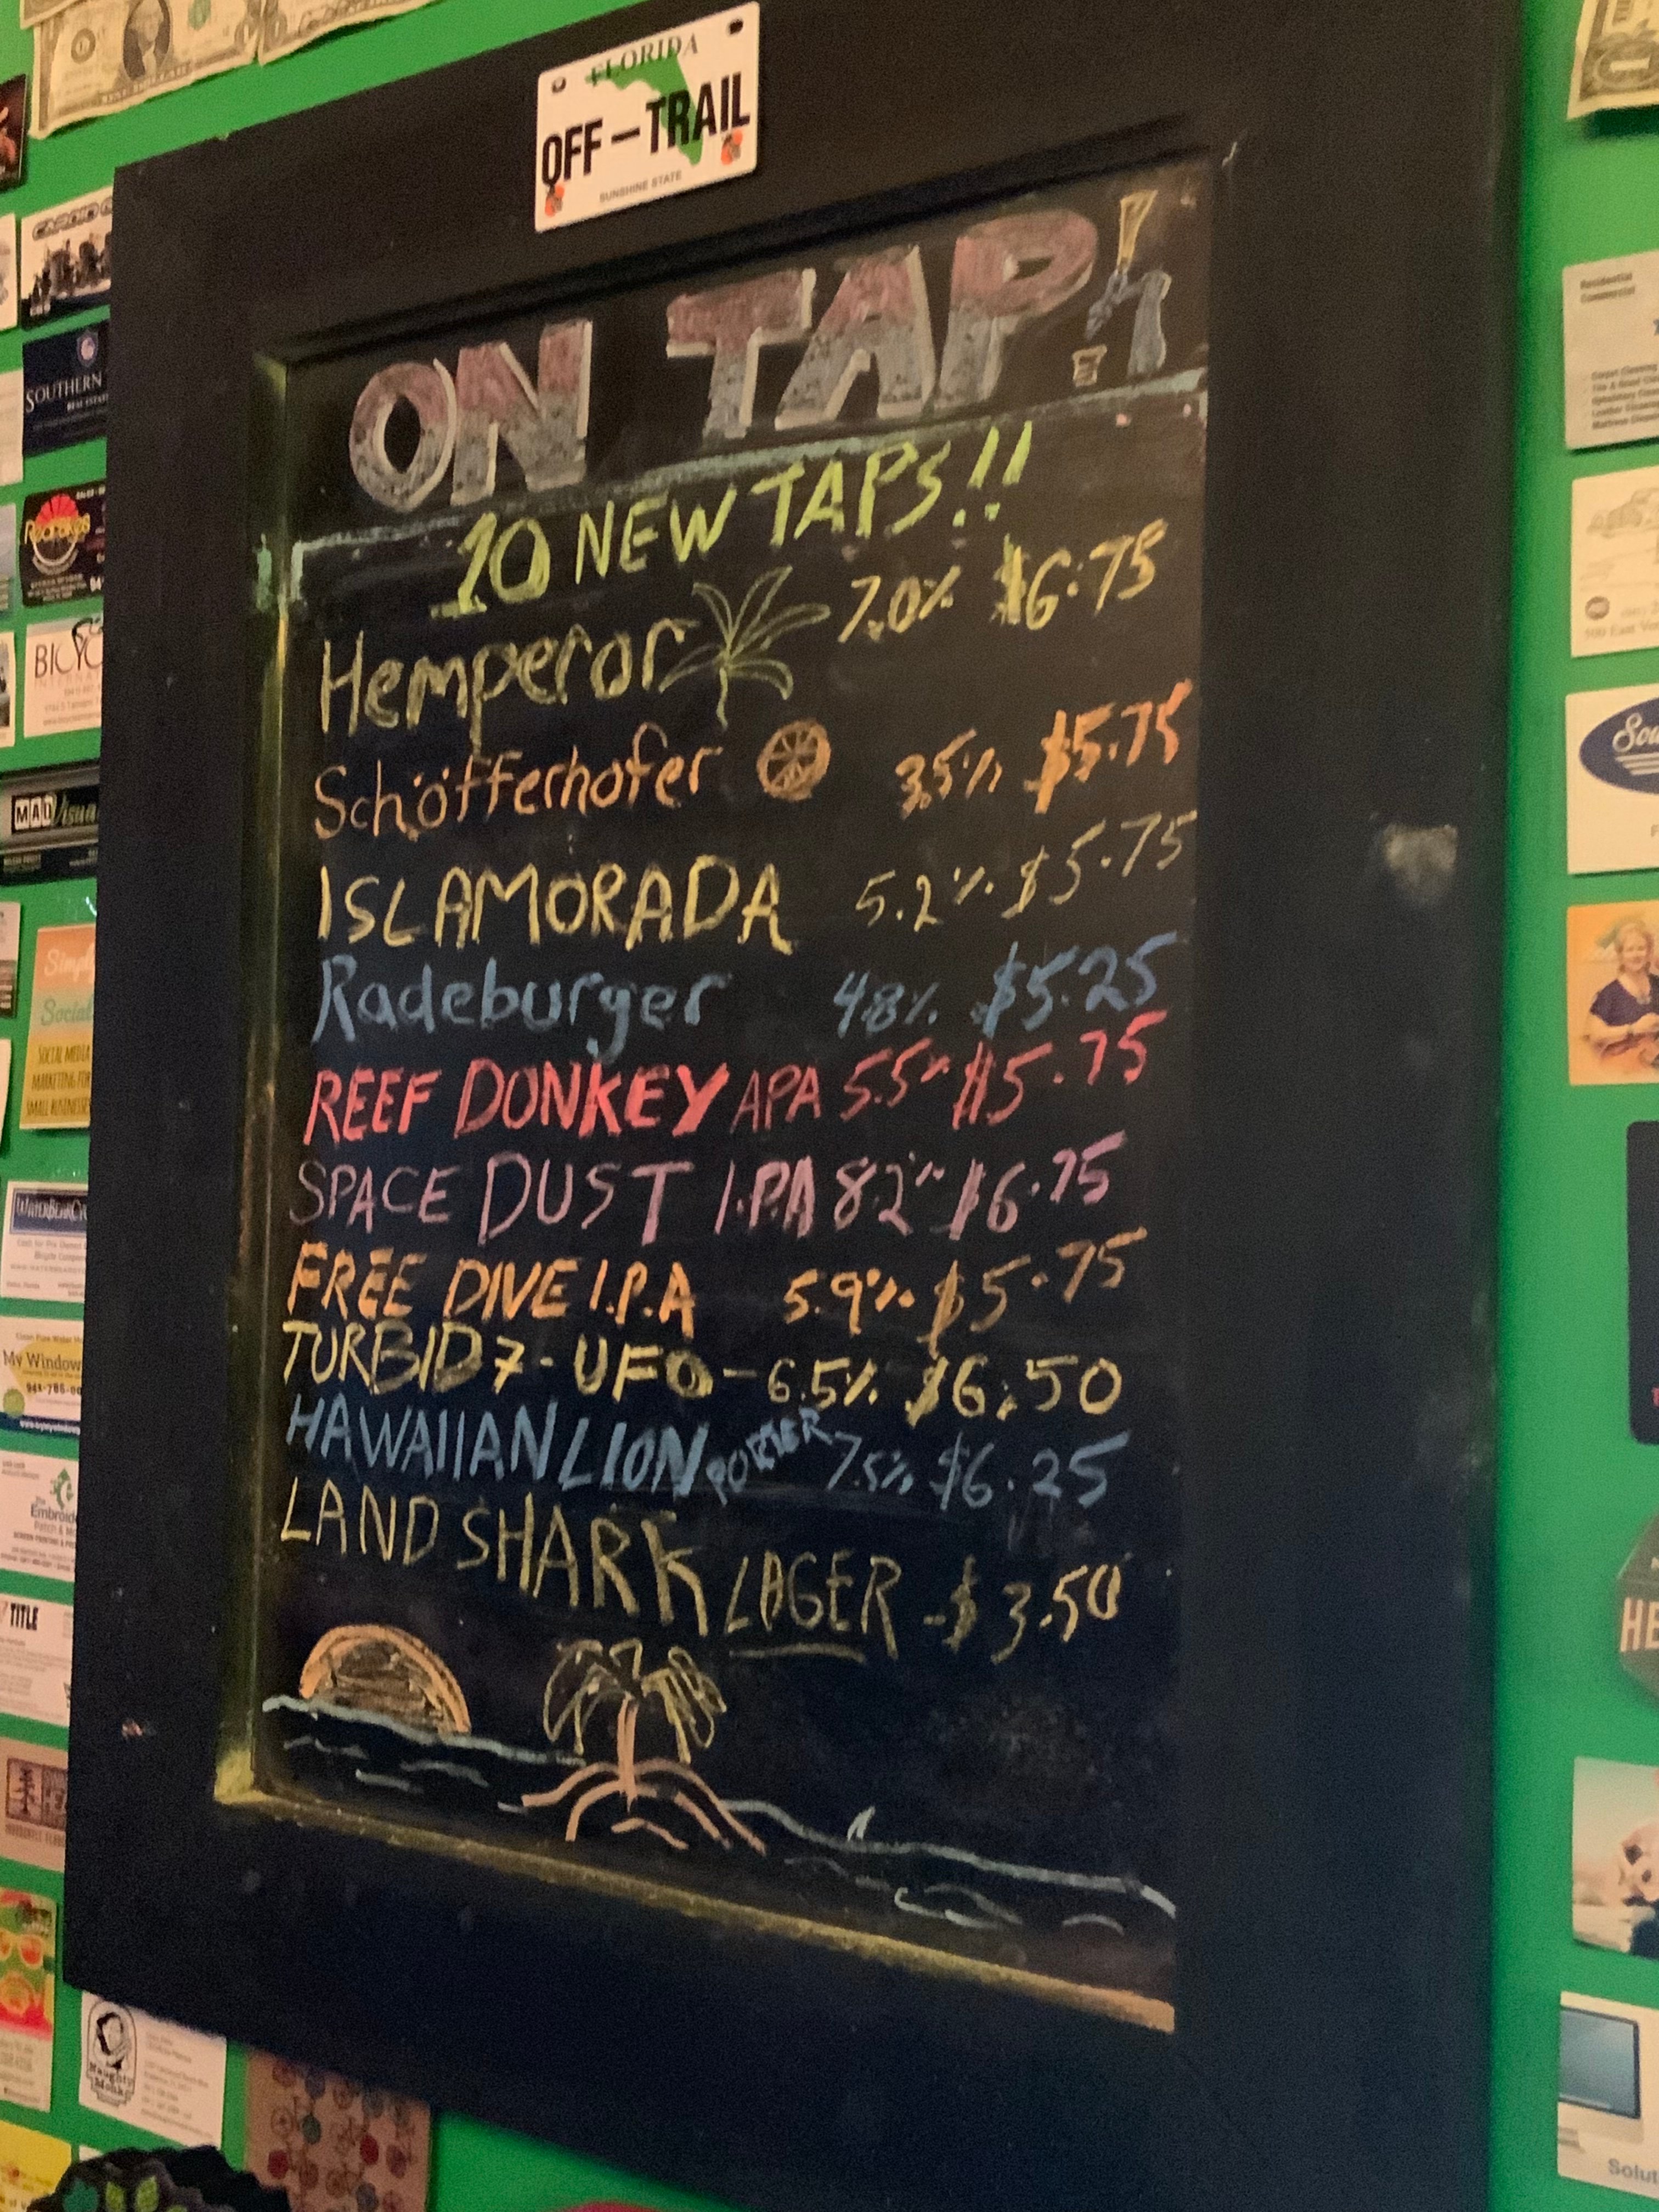 FLORIDA
OFF-TRAIL
SUNSHINE STATE
ON TAP!
10 NEW TAPS!!
Hemperor 7.0% $6.75
Schöfferhofer 3.5% $5.75
ISLAMORADA 5.2% $5.75
Radeburger 4.8% $5.25
REEF DONKEY APA 5.5% $5.75
SPACE DUST I.P.A 8.2% $6.75
FREE DIVE I.P.A 5.9% $5.75
TURBID 7-UFO-6.5% $6.50
HAWAIIAN LION PORTER 7.5% $6.25
LAND SHARK LAGER -$3.50
SOUTHERN
BICYC
MAD Visua
Simply
Social
SOCIAL MEDIA
MARKETING FOR
SMALL BUSINESSES
My Window
Embroide
TITLE
Naughty
Monk
Residential
Commercial
Sou
HE
Solut